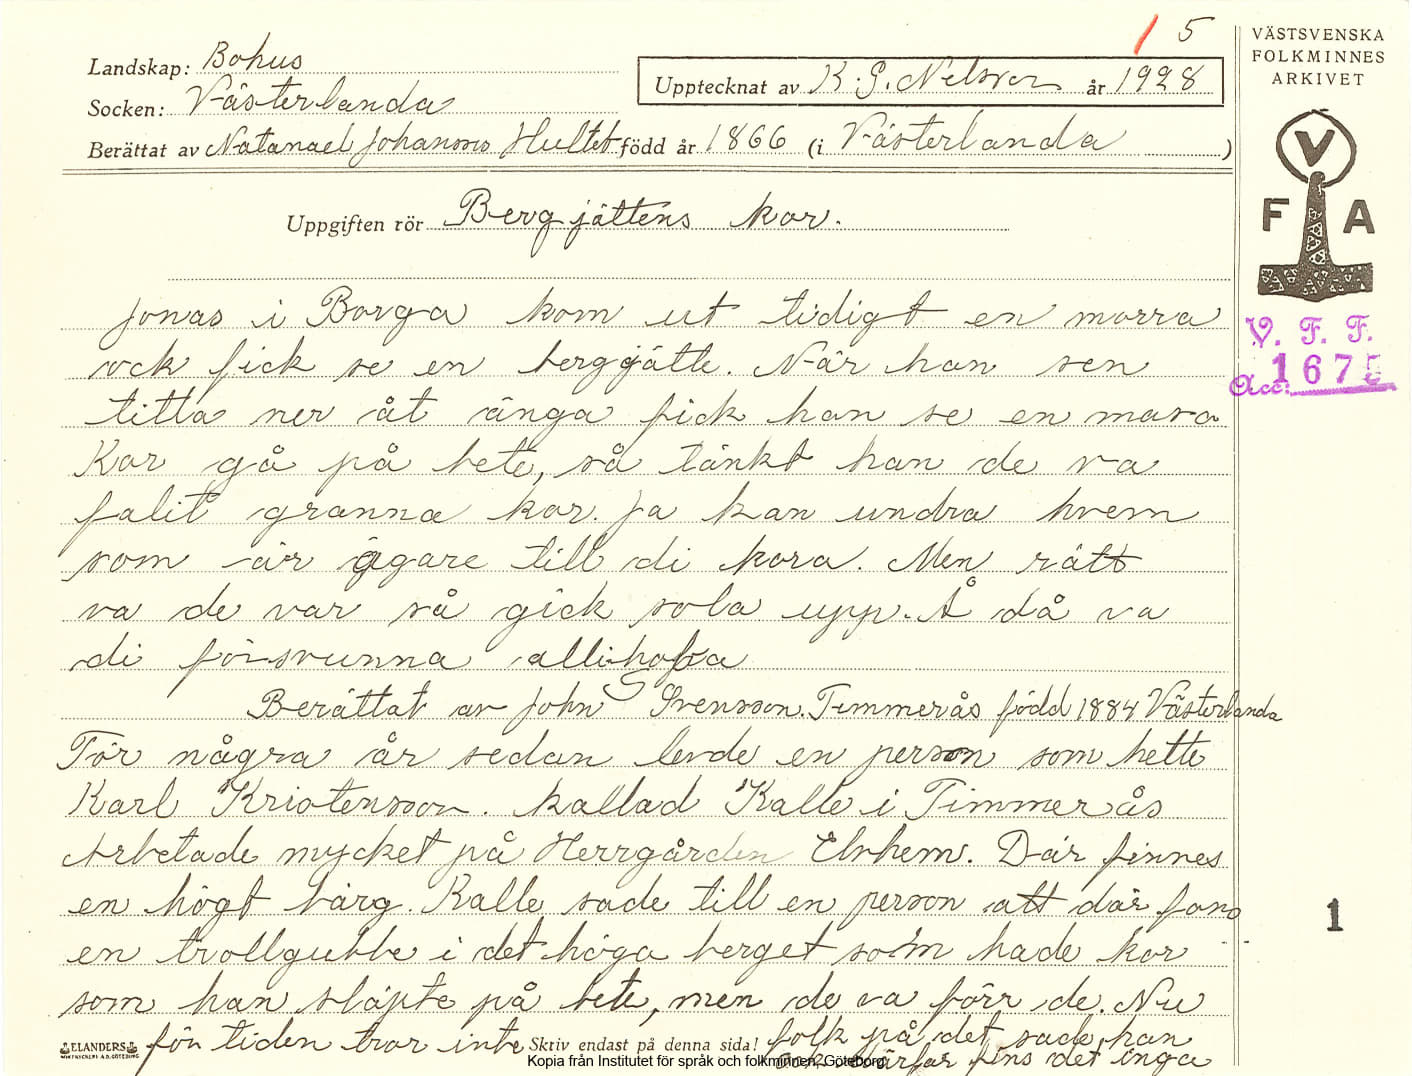 5
Landskap: Bohus
Socken: Västerlanda
Upptecknat av K. G. Nelson år 1928
Berättat av Natanael Johansson Hultet född år 1866 (i Västerlanda)
VÄSTSVENSKA
FOLKMINNES
ARKIVET
V
F A
V. F. F.
Acc: 1675
Uppgiften rör Bergjättens kor.
Jonas i Borga kom ut tidigt en morra
ock fick se en bergjätte. När han sen
titta ner åt änga fick han se en mara
Kor gå på bete, så tänkt han de va
falit granna kor. Ja kan undra hvem
som är ägare till di kora. Men rätt
va de var så gick sola upp. Å då va
di försvunna allihopa
Berättat av John Svensson. Timmerås född 1884 Västerlanda
För några år sedan levde en person som hette
Karl Kristensson. kallad Kalle i Timmerås
Arbetade mycket på Herrgården Elvhem. Där finnes
en högt bärg. Kalle sade till en person att där fans
en trollgubbe i det höga berget som hade kor
som han släpte på bete, men de va förr de. Nu
för tiden tror inte folk på det sade han
därfar fins det inga
1
ELANDERS
Skriv endast på denna sida!
Kopia från Institutet för språk och folkminnen, Göteborg